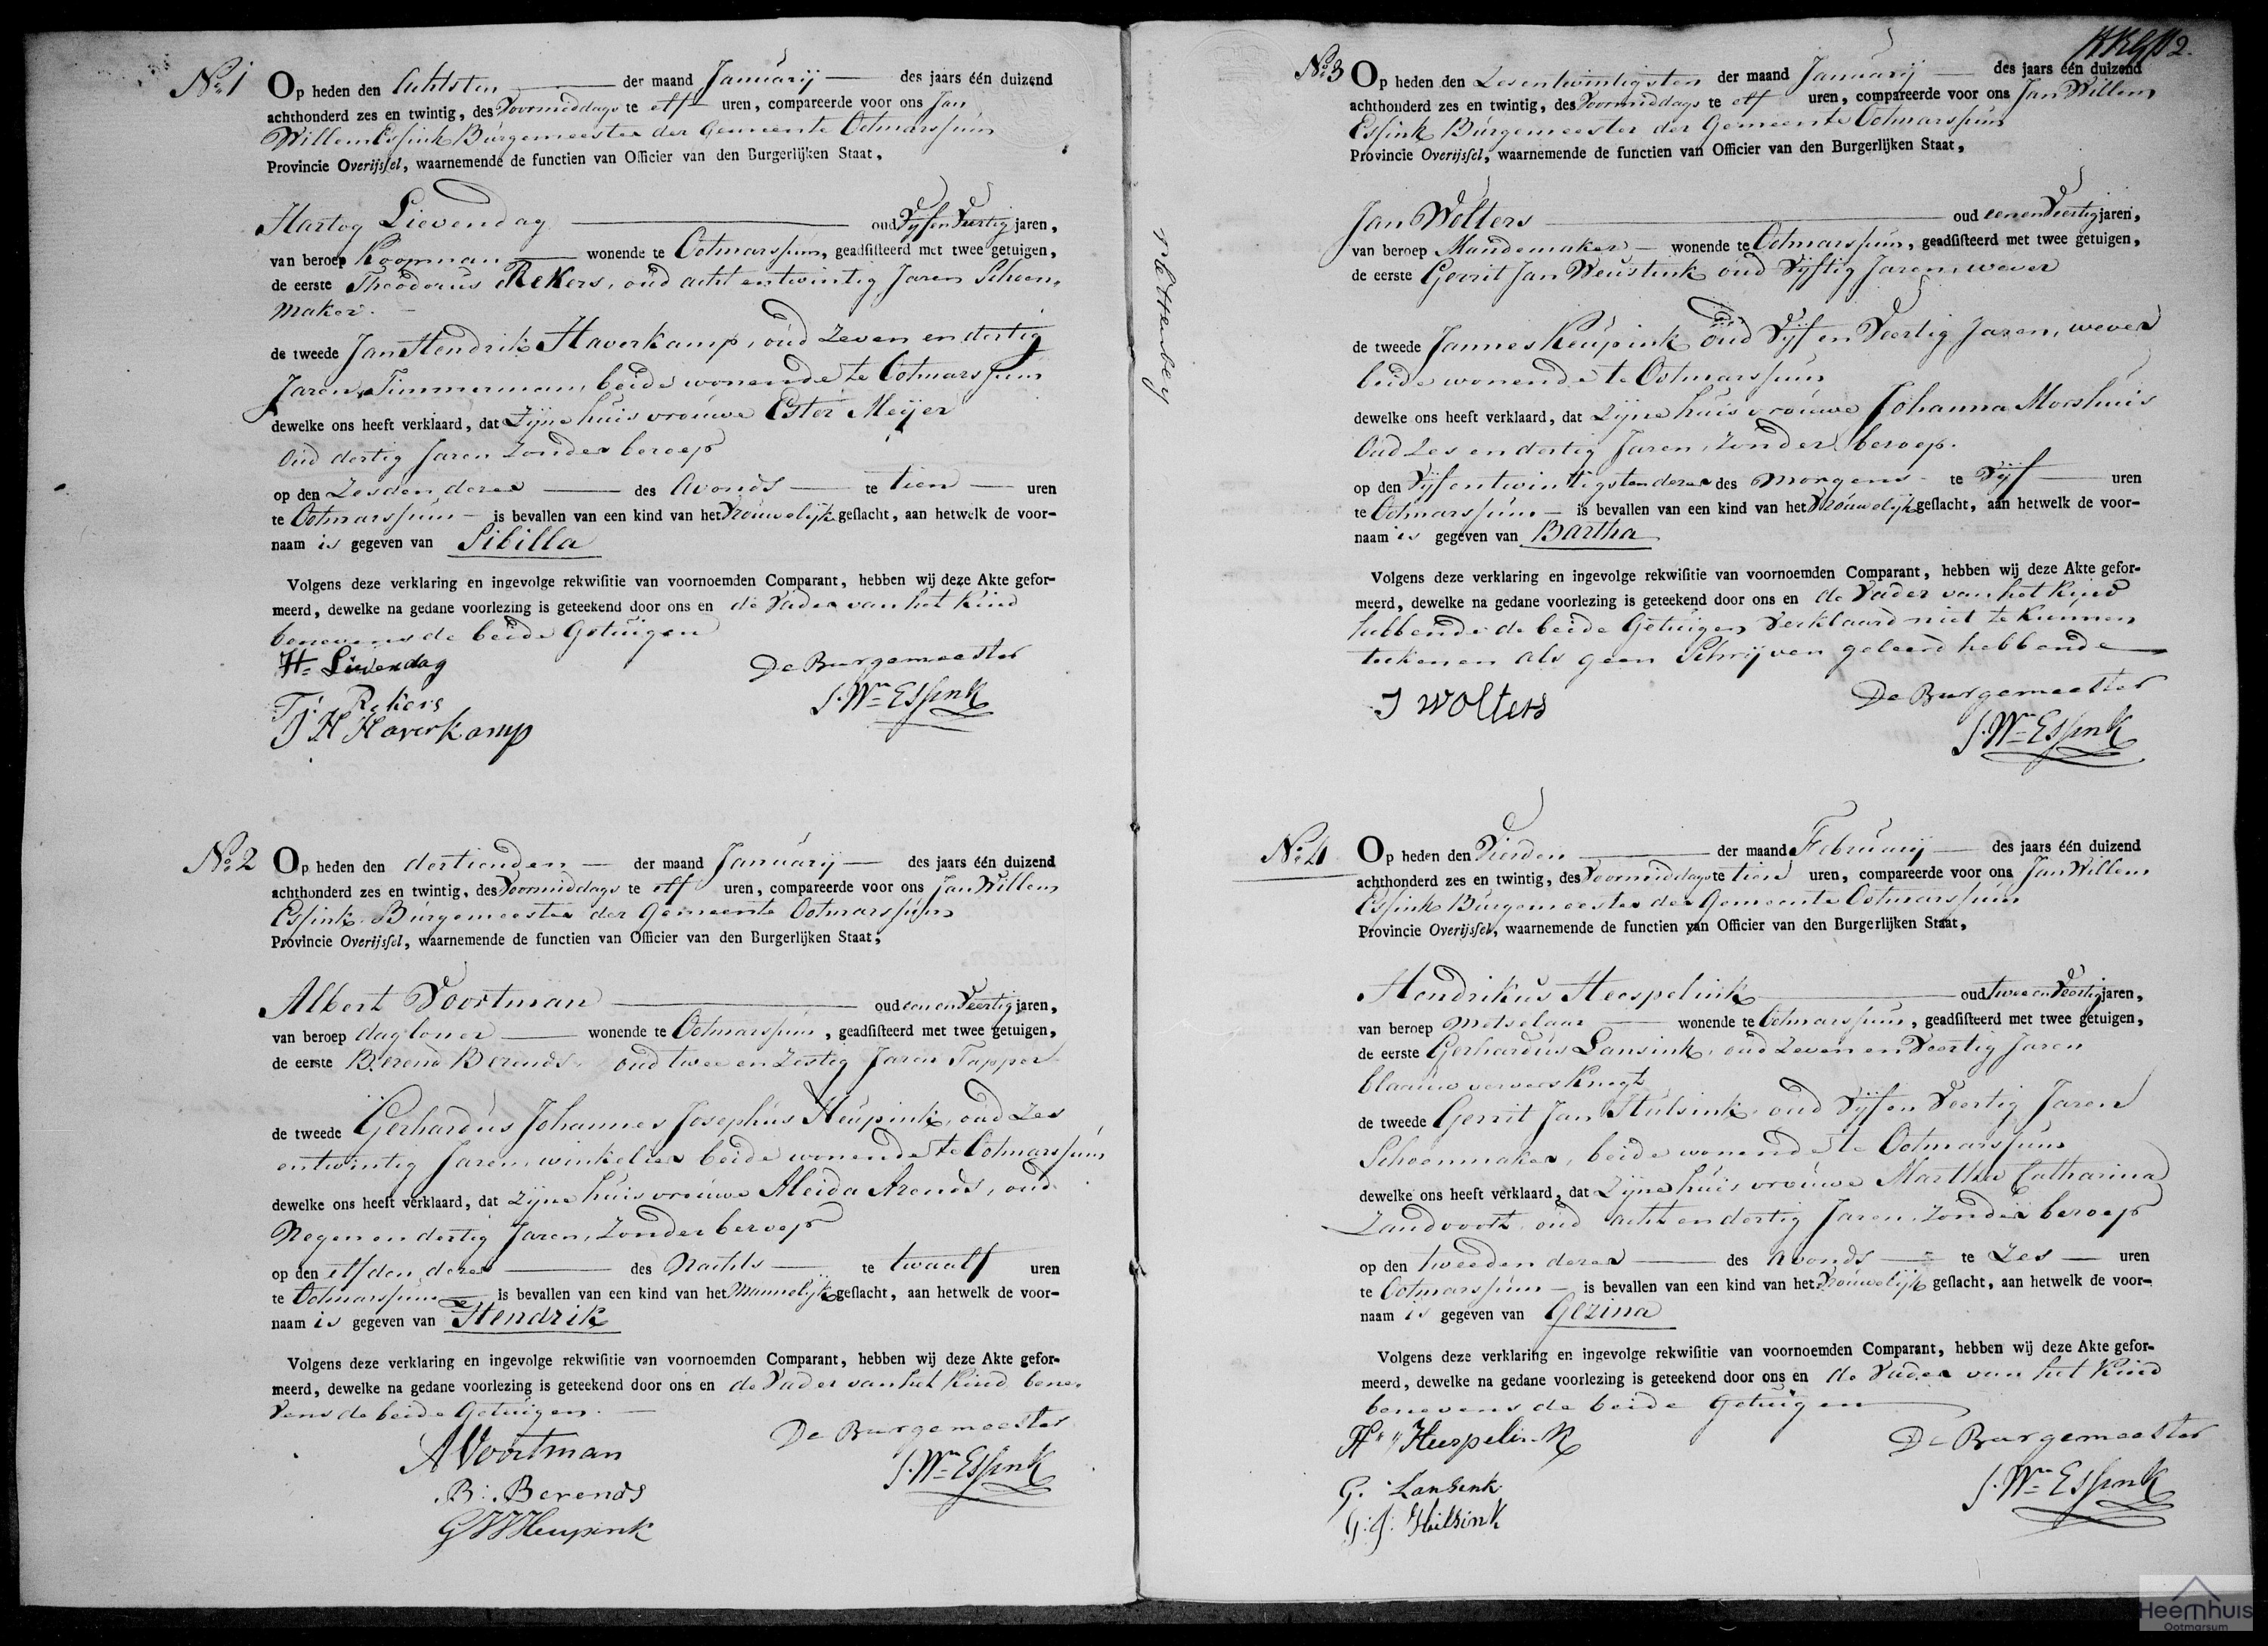 No. 1 Op heden den Achtsten der maand Januarij des jaars één duizend
achthonderd zes en twintig, des Voormiddags te elf uren, compareerde voor ons Jan
Willem Essink Burgemeester der Gemeente Ootmarssum
Provincie Overijssel, waarnemende de functien van Officier van den Burgerlijken Staat,
Hartog Lievendag oud Vijf en Veertig jaren,
van beroep Koopman wonende te Ootmarssum, geadsisteerd met twee getuigen,
de eerste Theodorus Rekers, oud acht en twintig Jaren Schoen-
maker.
de tweede Jan Hendrik Haverkamp, oud Zeven en dertig
Jaren, Timmerman, beide wonende te Ootmarssum
dewelke ons heeft verklaard, dat Zijne huisvrouwe Ester Meijer
Oud dertig Jaren Zonder beroep
op den Zesden dezer des Avonds te tien uren
te Ootmarssum is bevallen van een kind van het Vrouwelijk geslacht, aan hetwelk de voor-
naam is gegeven van Sibilla
Volgens deze verklaring en ingevolge rekwisitie van voornoemden Comparant, hebben wij deze Akte gefor-
meerd, dewelke na gedane voorlezing is geteekend door ons en de Vader van het Kind
benevens de beide Getuigen
H. Lievendag
De Burgemeester
T. Rekers
J. Wm Essink
J H Haverkamp
No. 2 Op heden den dertienden der maand Januarij des jaars één duizend
achthonderd zes en twintig, des Voormiddags te elf uren, compareerde voor ons Jan Willem
Essink Burgemeester der Gemeente Ootmarssum
Provincie Overijssel, waarnemende de functien van Officier van den Burgerlijken Staat,
Albert Voortman oud een en Veertig jaren,
van beroep dagloner wonende te Ootmarssum, geadsisteerd met twee getuigen,
de eerste Berend Berends, oud twee en Zestig Jaren Tapper
de tweede Gerhardus Johannes Josephus Heupink, oud Zes
en twintig Jaren, winkelier beide wonende te Ootmarssum
dewelke ons heeft verklaard, dat Zijne huisvrouwe Aleida Arends, oud
Negen en dertig Jaren, Zonder beroep
op den elfden dezer des Nachts te twaalf uren
te Ootmarssum is bevallen van een kind van het Mannelijk geslacht, aan hetwelk de voor-
naam is gegeven van Hendrik
Volgens deze verklaring en ingevolge rekwisitie van voornoemden Comparant, hebben wij deze Akte gefor-
meerd, dewelke na gedane voorlezing is geteekend door ons en de Vader van het Kind bene-
vens de beide Getuigen.
A Voortman
De Burgemeester
B. Berends
J. Wm Essink
G J J Heupink
2.
No. 3 Op heden den Zesentwintigsten der maand Januarij des jaars één duizend
achthonderd zes en twintig, des Voormiddags te elf uren, compareerde voor ons Jan Willem
Essink Burgemeester der Gemeente Ootmarssum
Provincie Overijssel, waarnemende de functien van Officier van den Burgerlijken Staat,
Jan Wolters oud een en Veertig jaren,
van beroep Mandemaker wonende te Ootmarssum, geadsisteerd met twee getuigen,
de eerste Gerrit Jan Weustink oud Vijftig Jaren, wever
de tweede Jannes Keupink oud Vijf en Veertig Jaren, wever
beide wonende te Ootmarssum
dewelke ons heeft verklaard, dat Zijne huisvrouwe Johanna Morshuis
Oud Zes en dertig Jaren, Zonder beroep.
op den Vijf en twintigsten dezer des morgens te Vijf uren
te Ootmarssum is bevallen van een kind van het Vrouwelijk geslacht, aan hetwelk de voor-
naam is gegeven van Bartha
Volgens deze verklaring en ingevolge rekwisitie van voornoemden Comparant, hebben wij deze Akte gefor-
meerd, dewelke na gedane voorlezing is geteekend door ons en de Vader van het Kind
hebbende de beide Getuigen Verklaard niet te kunnen
teekenen als geen Schrijven geleerd hebbende
J Wolters
De Burgemeester
J. Wm Essink
No. 4 Op heden den Vierden der maand Februarij des jaars één duizend
achthonderd zes en twintig, des Voormiddags te tien uren, compareerde voor ons Jan Willem
Essink Burgemeester der Gemeente Ootmarssum
Provincie Overijssel, waarnemende de functien van Officier van den Burgerlijken Staat,
Hendrikus Heespelink oud twee en Veertig jaren,
van beroep Metselaar wonende te Ootmarssum, geadsisteerd met twee getuigen,
de eerste Gerhardus Lansink, oud Zeven en Veertig Jaren
blaauwververs Knegt
de tweede Gerrit Jan Hulsink, oud Vijf en Veertig Jaren
Schoenmaker, beide wonende te Ootmarssum
dewelke ons heeft verklaard, dat Zijne huisvrouwe Martha Catharina
Zandvoort oud acht en dertig Jaren, Zonder beroep
op den tweeden dezer des Avonds te Zes uren
te Ootmarssum is bevallen van een kind van het Vrouwelijk geslacht, aan hetwelk de voor-
naam is gegeven van Gezina
Volgens deze verklaring en ingevolge rekwisitie van voornoemden Comparant, hebben wij deze Akte gefor-
meerd, dewelke na gedane voorlezing is geteekend door ons en de Vader van het Kind
benevens de beide Getuigen
H Heespelink
De Burgemeester
G. Lansink
J. Wm Essink
G. J. Hulsink
Heemhuis
Ootmarsum